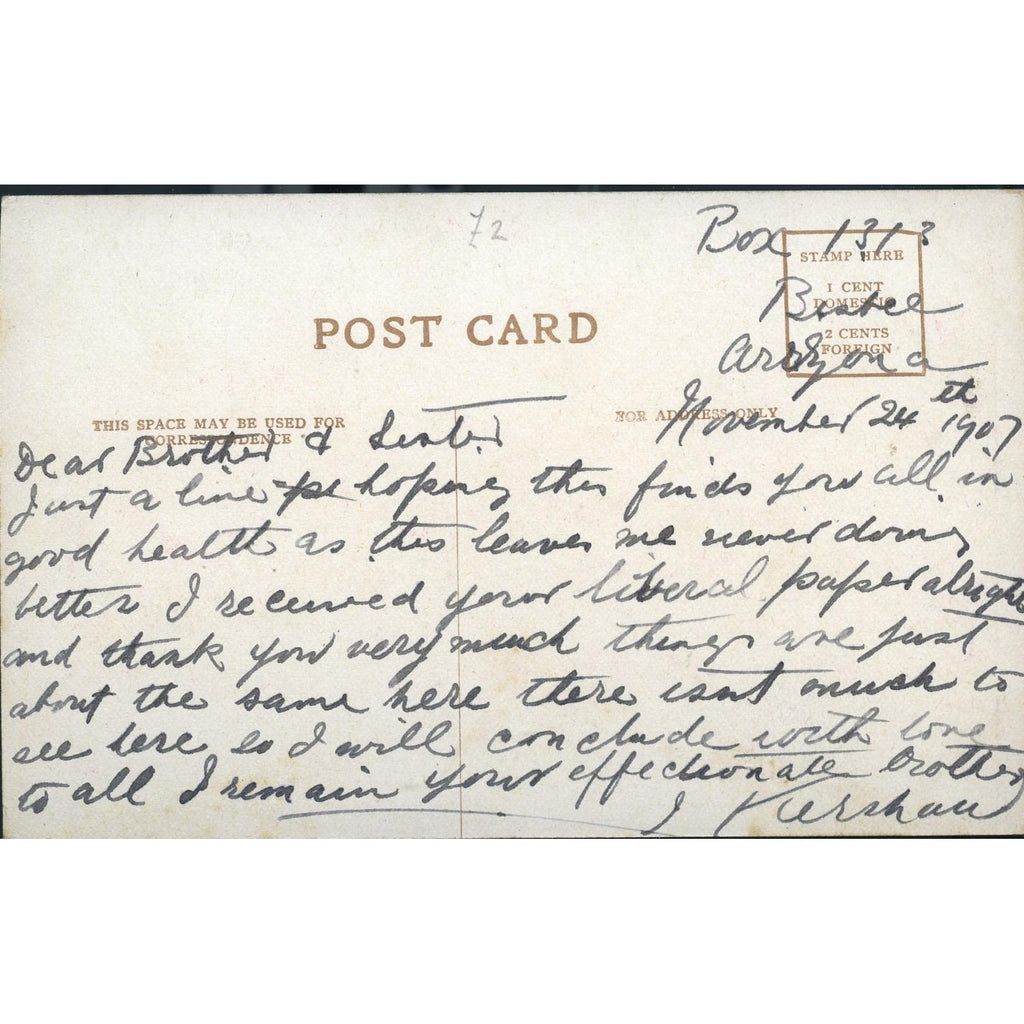 72
Box 1313
STAMP HERE
1 CENT
DOMESTIC
2 CENTS
FOREIGN
Bisbee
Arizona
POST CARD
THIS SPACE MAY BE USED FOR
CORRESPONDENCE
FOR ADDRESS ONLY
November 24th 1907
Dear Brother & Sister
Just a line hoping this finds you all in
good health as this leaves me never doing
better I received your liberal paper alright
and thank you very much things are just
about the same here there isnt much to
see here so I will conclude with love
to all I remain your effectionate brother
J Kershaw